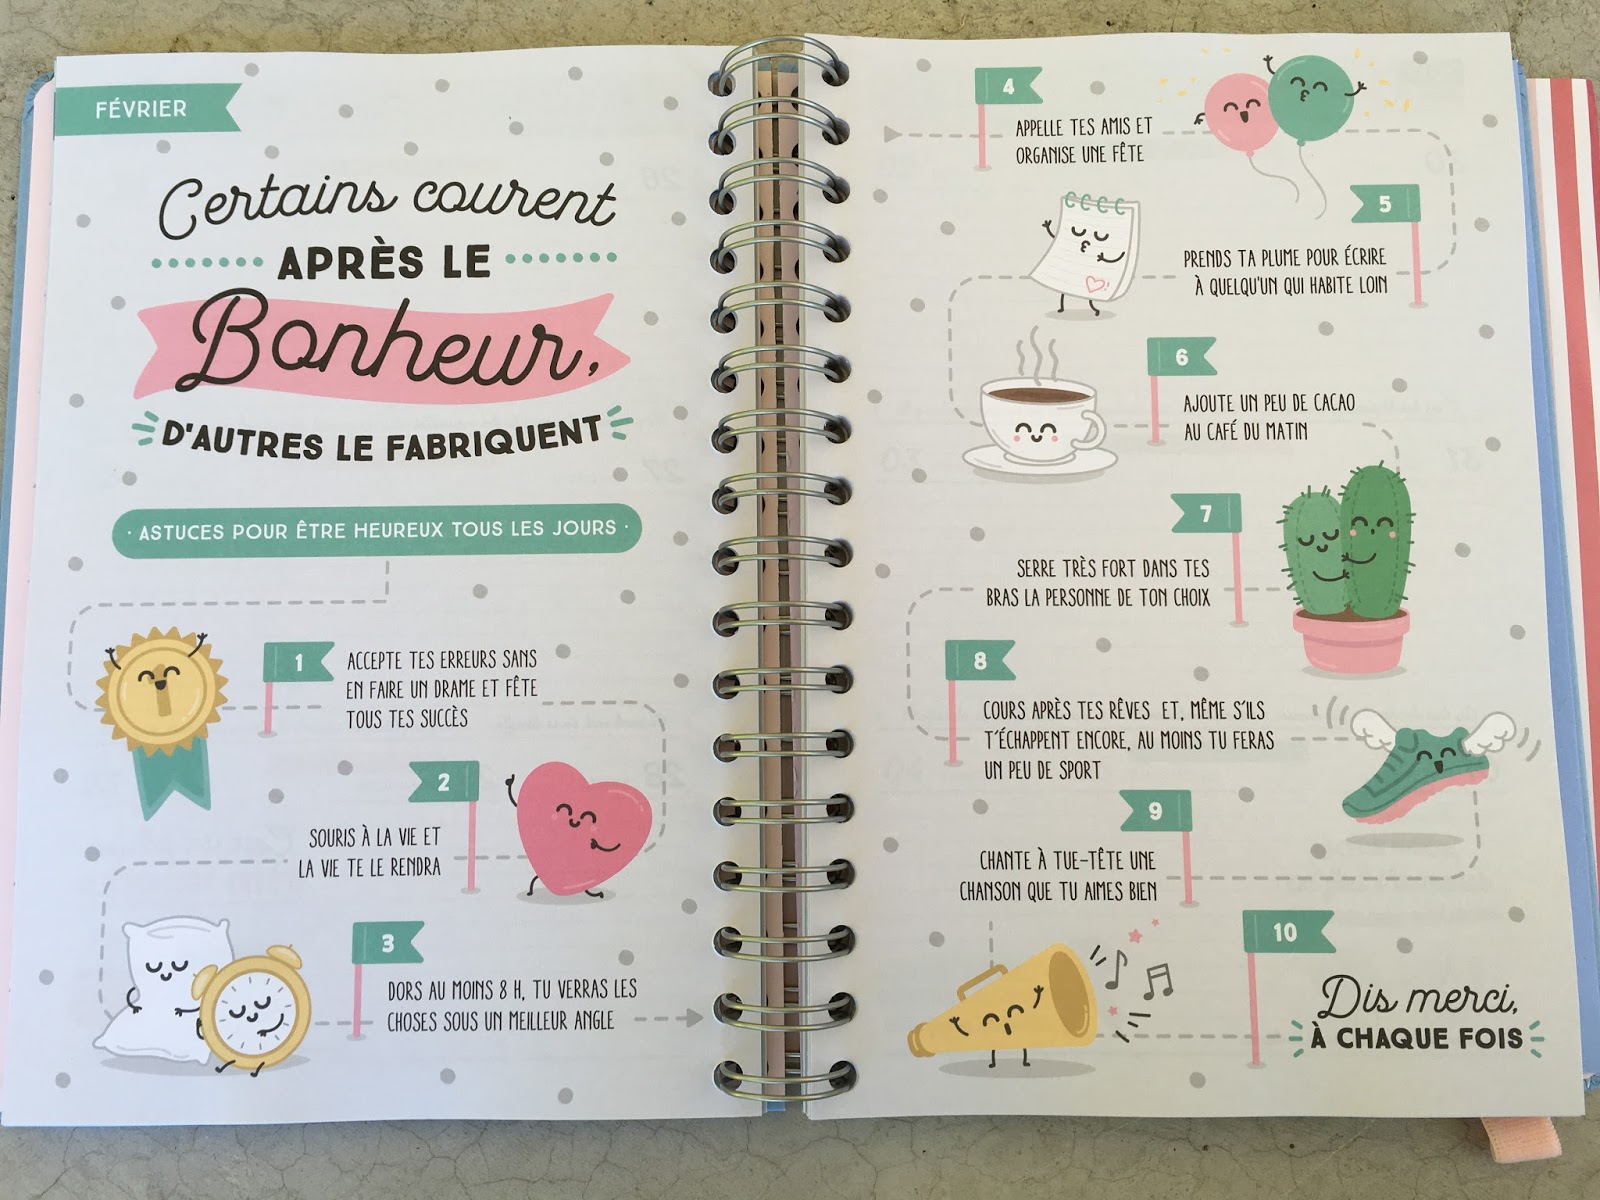 FÉVRIER
Certains courent
APRÈS LE
Bonheur,
D'AUTRES LE FABRIQUENT
· ASTUCES POUR ÊTRE HEUREUX TOUS LES JOURS ·
1
ACCEPTE TES ERREURS SANS
EN FAIRE UN DRAME ET FÊTE
TOUS TES SUCCÈS
2
SOURIS À LA VIE ET
LA VIE TE LE RENDRA
3
DORS AU MOINS 8 H, TU VERRAS LES
CHOSES SOUS UN MEILLEUR ANGLE
4
APPELLE TES AMIS ET
ORGANISE UNE FÊTE
5
PRENDS TA PLUME POUR ÉCRIRE
À QUELQU'UN QUI HABITE LOIN
6
AJOUTE UN PEU DE CACAO
AU CAFÉ DU MATIN
7
SERRE TRÈS FORT DANS TES
BRAS LA PERSONNE DE TON CHOIX
8
COURS APRÈS TES RÊVES ET, MÊME S'ILS
T'ÉCHAPPENT ENCORE, AU MOINS TU FERAS
UN PEU DE SPORT
9
CHANTE À TUE-TÊTE UNE
CHANSON QUE TU AIMES BIEN
10
Dis merci,
À CHAQUE FOIS